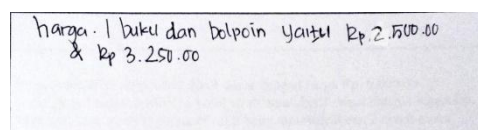 harga. 1 buku dan bolpoin yaitu Rp.2.500.00
& Rp 3.250.00